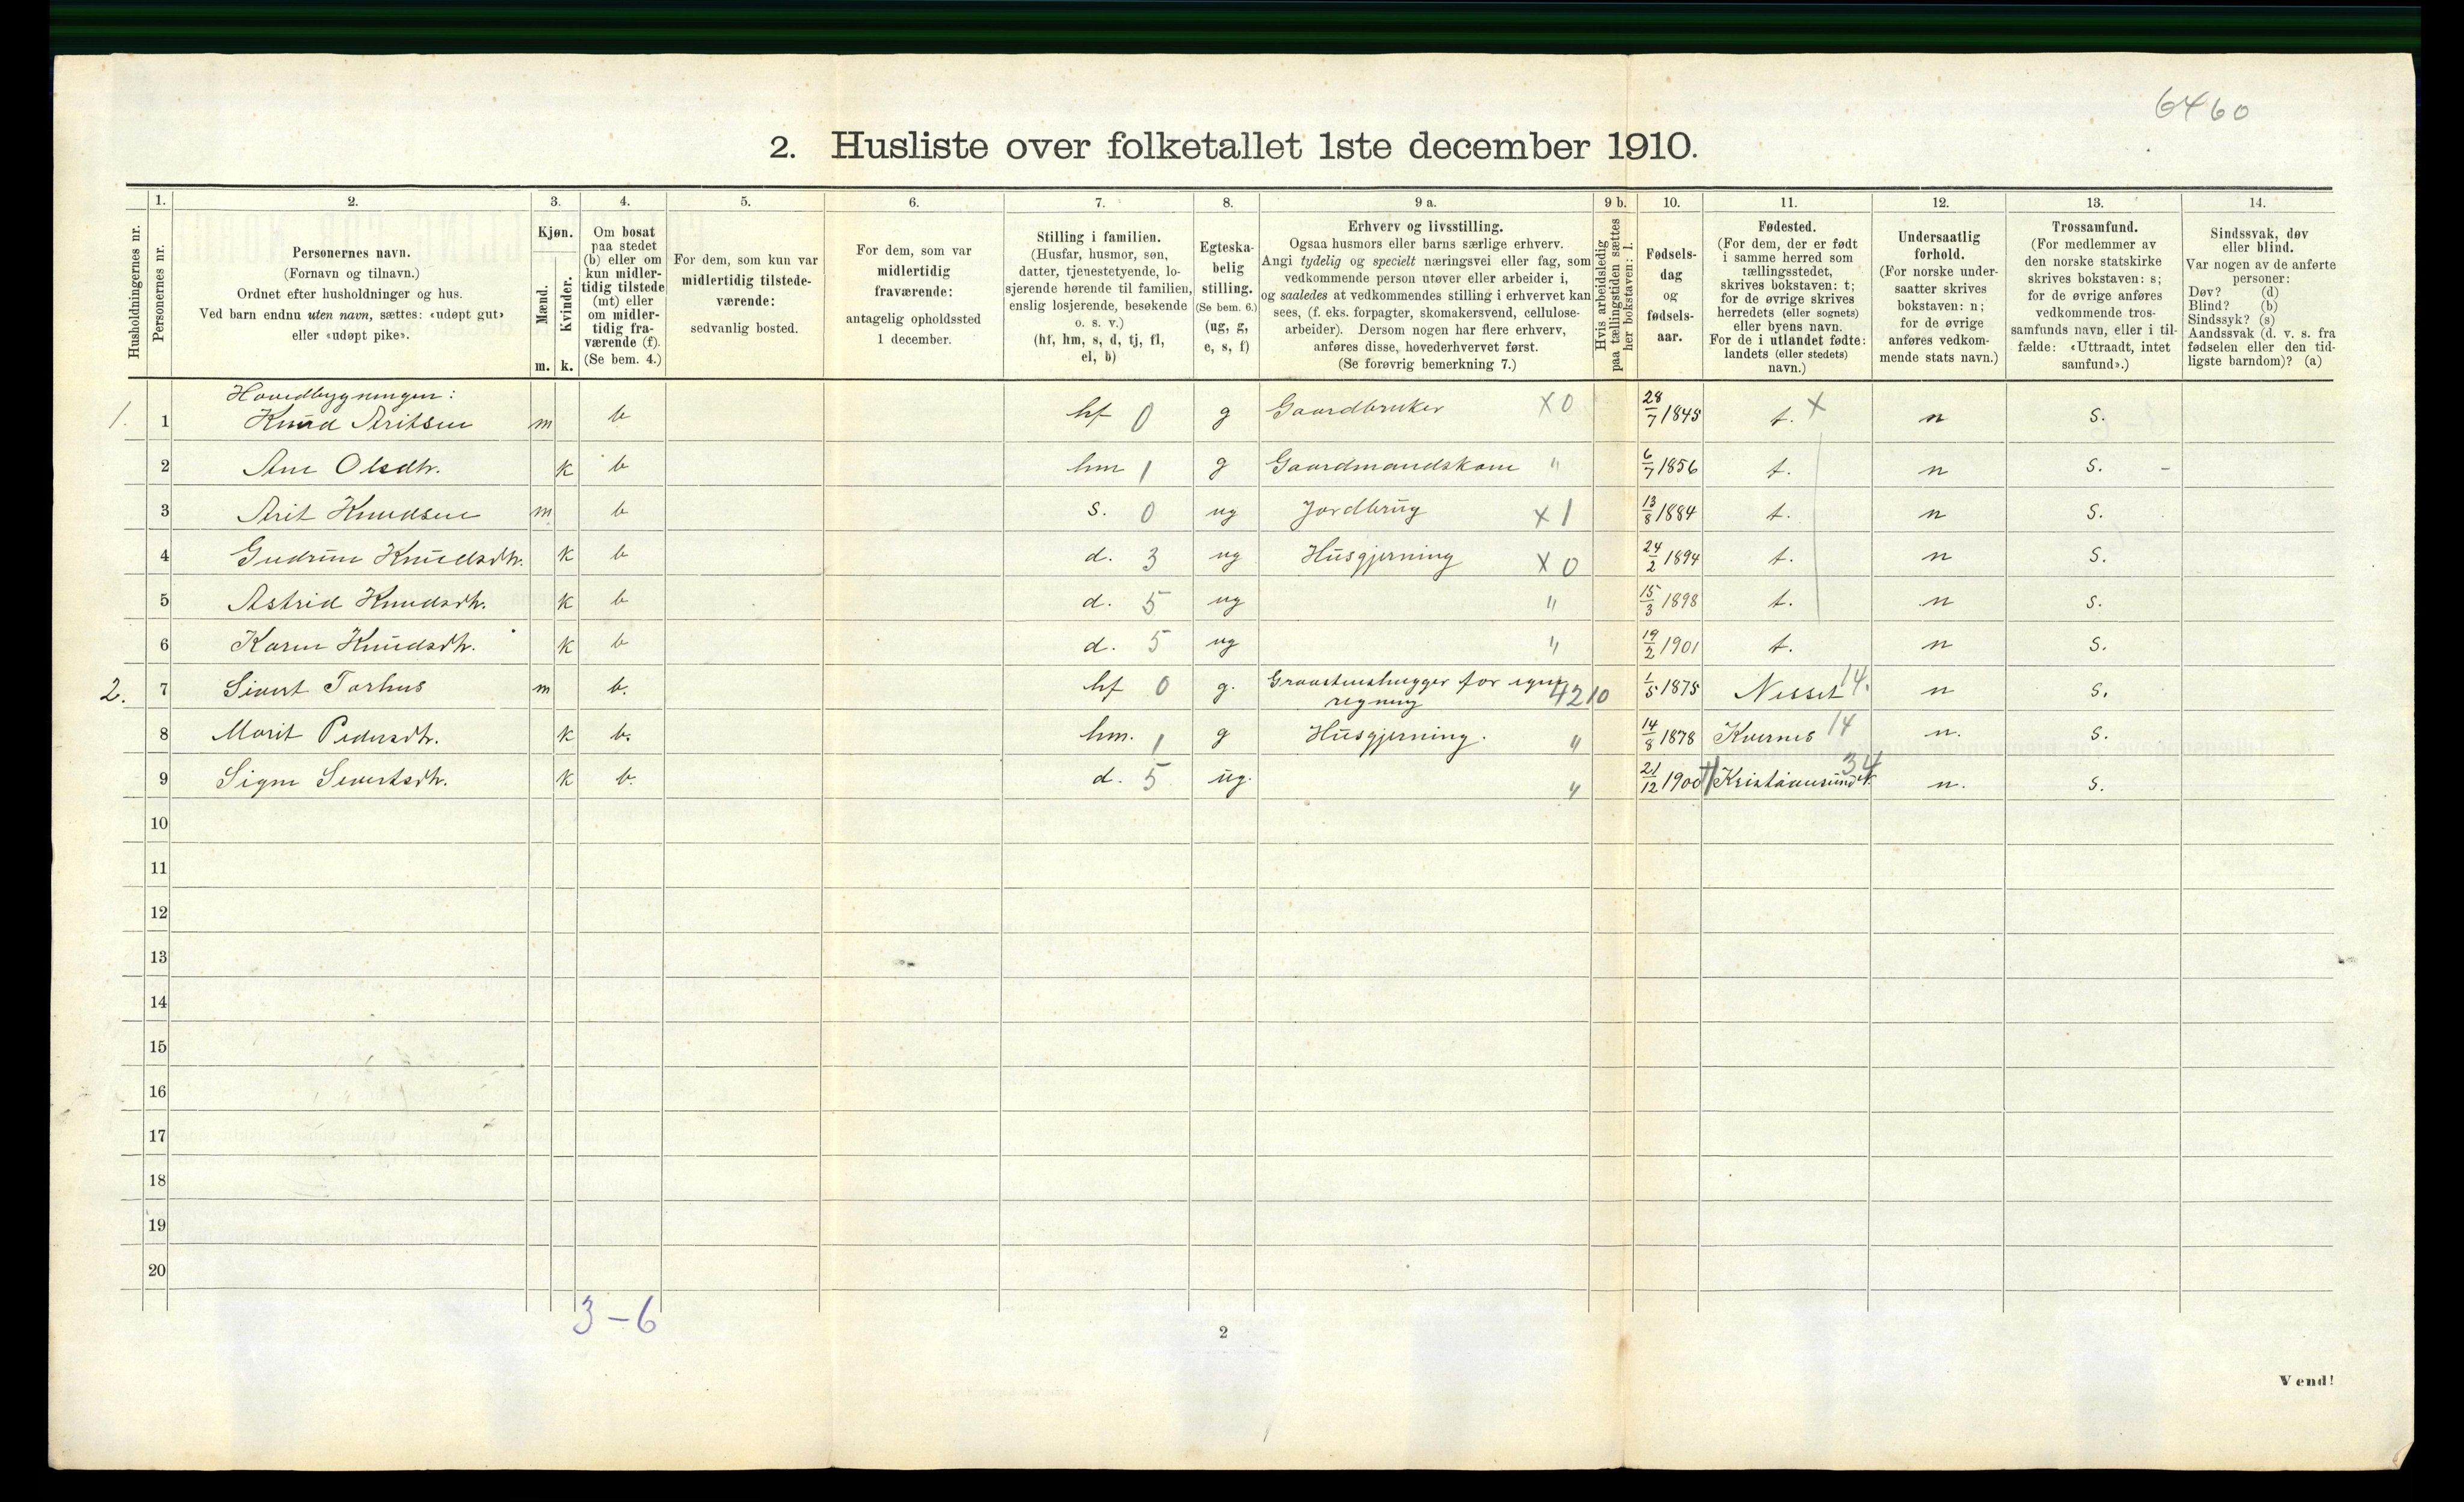 6460
2. Husliste over folketallet 1ste december 1910.
Husholdningernes nr.
1. Personernes nr.
2. Personernes navn.
(Fornavn og tilnavn.)
Ordnet efter husholdninger og hus.
Ved barn endnu uten navn, sættes: «udøpt gut»
eller «udøpt pike».
3. Kjøn.
Mænd. m.
Kvinder. k.
4. Om bosat
paa stedet
(b) eller om
kun midler-
tidig tilstede
(mt) eller
om midler-
tidig fra-
værende (f).
(Se bem. 4.)
5. For dem, som kun var
midlertidig tilstede-
værende:
sedvanlig bosted.
6. For dem, som var
midlertidig
fraværende:
antagelig opholdssted
1 december.
7. Stilling i familien.
(Husfar, husmor, søn,
datter, tjenestetyende, lo-
sjerende hørende til familien,
enslig losjerende, besøkende
o. s. v.)
(hf, hm, s, d, tj, fl,
el, b)
8. Egteska-
belig
stilling.
(Se bem. 6.)
(ug, g,
e, s, f)
9 a. Erhverv og livsstilling.
Ogsaa husmors eller barns særlige erhverv.
Angi tydelig og specielt næringsvei eller fag, som
vedkommende person utøver eller arbeider i,
og saaledes at vedkommendes stilling i erhvervet kan
sees, (f. eks. forpagter, skomakersvend, cellulose-
arbeider). Dersom nogen har flere erhverv,
anføres disse, hovederhvervet først.
(Se forøvrig bemerkning 7.)
9 b. Hvis arbeidsledig
paa tællingstiden sættes
her bokstaven: l.
10. Fødsels-
dag
og
fødsels-
aar.
11. Fødested.
(For dem, der er født
i samme herred som
tællingsstedet,
skrives bokstaven: t;
for de øvrige skrives
herredets (eller sognets)
eller byens navn.
For de i utlandet fødte:
landets (eller stedets)
navn.)
12. Undersaatlig
forhold.
(For norske under-
saatter skrives
bokstaven: n;
for de øvrige
anføres vedkom-
mende stats navn.)
13. Trossamfund.
(For medlemmer av
den norske statskirke
skrives bokstaven: s;
for de øvrige anføres
vedkommende tros-
samfunds navn, eller i til-
fælde: «Uttraadt, intet
samfund».)
14. Sindssvak, døv
eller blind.
Var nogen av de anførte
personer:
Døv? (d)
Blind? (b)
Sindssyk? (s)
Aandssvak (d. v. s. fra
fødselen eller den tid-
ligste barndom)? (a)
Hovedbygningen:
1. 1 Knud Aritsen m b hf 0 g Gaardbruker X0 28/7 1845 t. X n s.
2 Ane Olsdtr. k b hm 1 g Gaardmandskone " 6/7 1856 t. n s. -
3 Arit Knudsen m b s. 0 ug Jordbrug x1 13/8 1884 t. n s.
4 Gudrun Knudsdtr. k b d. 3 ug Husgjerning X0 24/2 1894 t. n s.
5 Astrid Knudsdtr. k b d. 5 ug " 15/3 1898 t. n s.
6 Karen Knudsdtr. k b d. 5 ug " 19/2 1901 t. n s.
2. 7 Sivert Torhus m b. hf 0 g. Graastenshugger for egen
regning 4210 1/5 1875 Nesset 14. n s.
8 Marit Pedersdtr. k b. hm. 1 g Husgjerning. " 14/8 1878 Kvernes 14 n. s.
9 Signe Sivertsdtr. k b. d. 5 ug. " 21/12 1900 Kristiansund N. 34 n. s.
10
11
12
13
14
15
16
17
18
19
20
3-6
2
Vend!